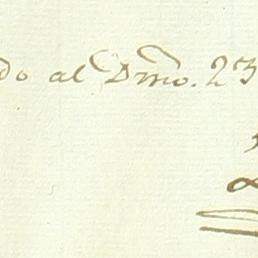 do al Dmo. 23